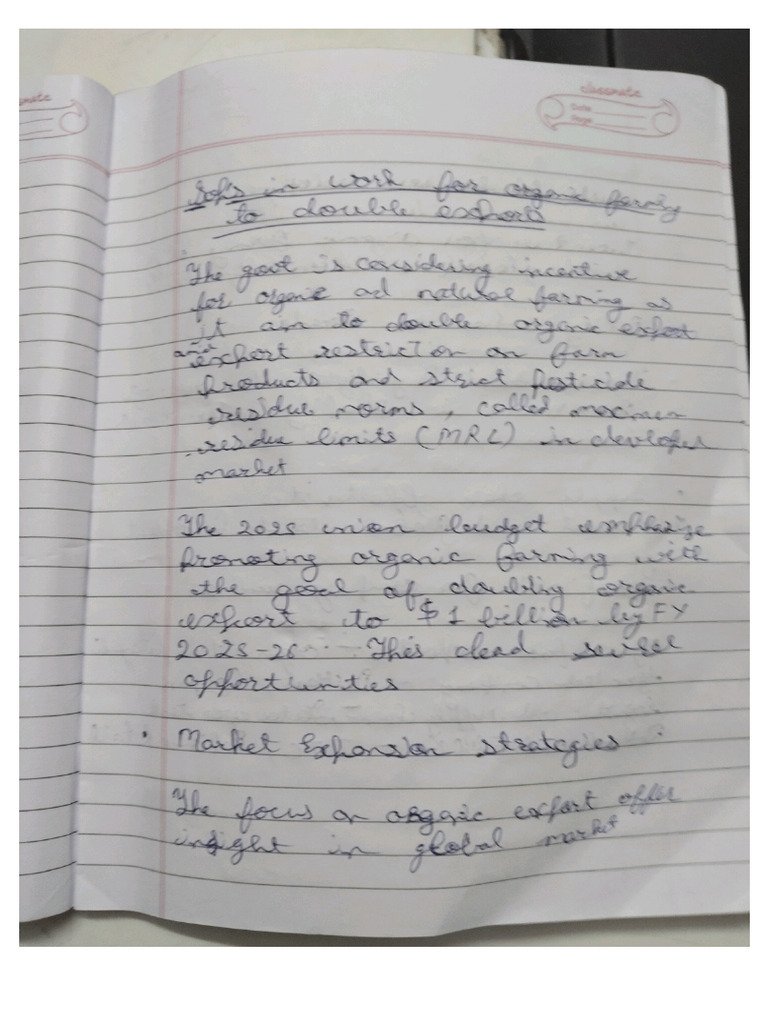 classmate
Date
Page
Sops in work for organic farmig
to double exports
The govt is considering incentive
for organic ad natural farming as
it aim to double organic export
amid
export restriction on farm
products and strict pesticide
residue norms, called
residue limits (MRL) in develope
market
The 2025 union budget emphasize
promoting organic farming with
the goal of doubling organic
export to $1 billion by FY
2025-26... This
opportunities
Market Expansion strategies
The focus on organic export offer
insight in global market